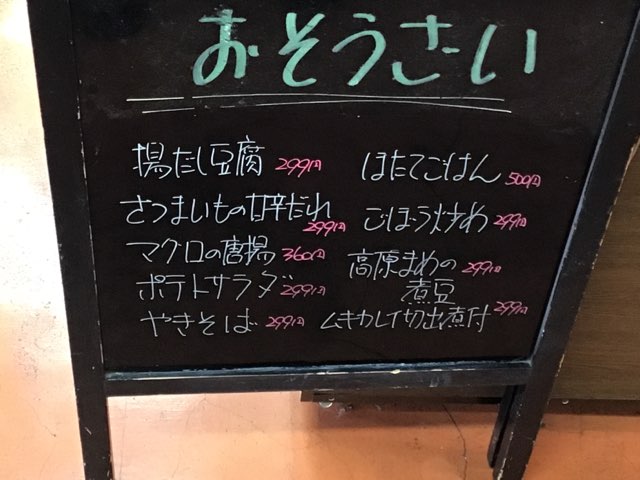 おそうざい
揚だし豆腐 299円
さつまいもの甘辛だれ
299円
マグロの唐揚 360円
ポテトサラダ 299円
やきそば 299円
ほたてごはん 500円
ごぼう炒め 299円
高原まめの 299円
煮豆
ムキカレイ切出煮付 299円